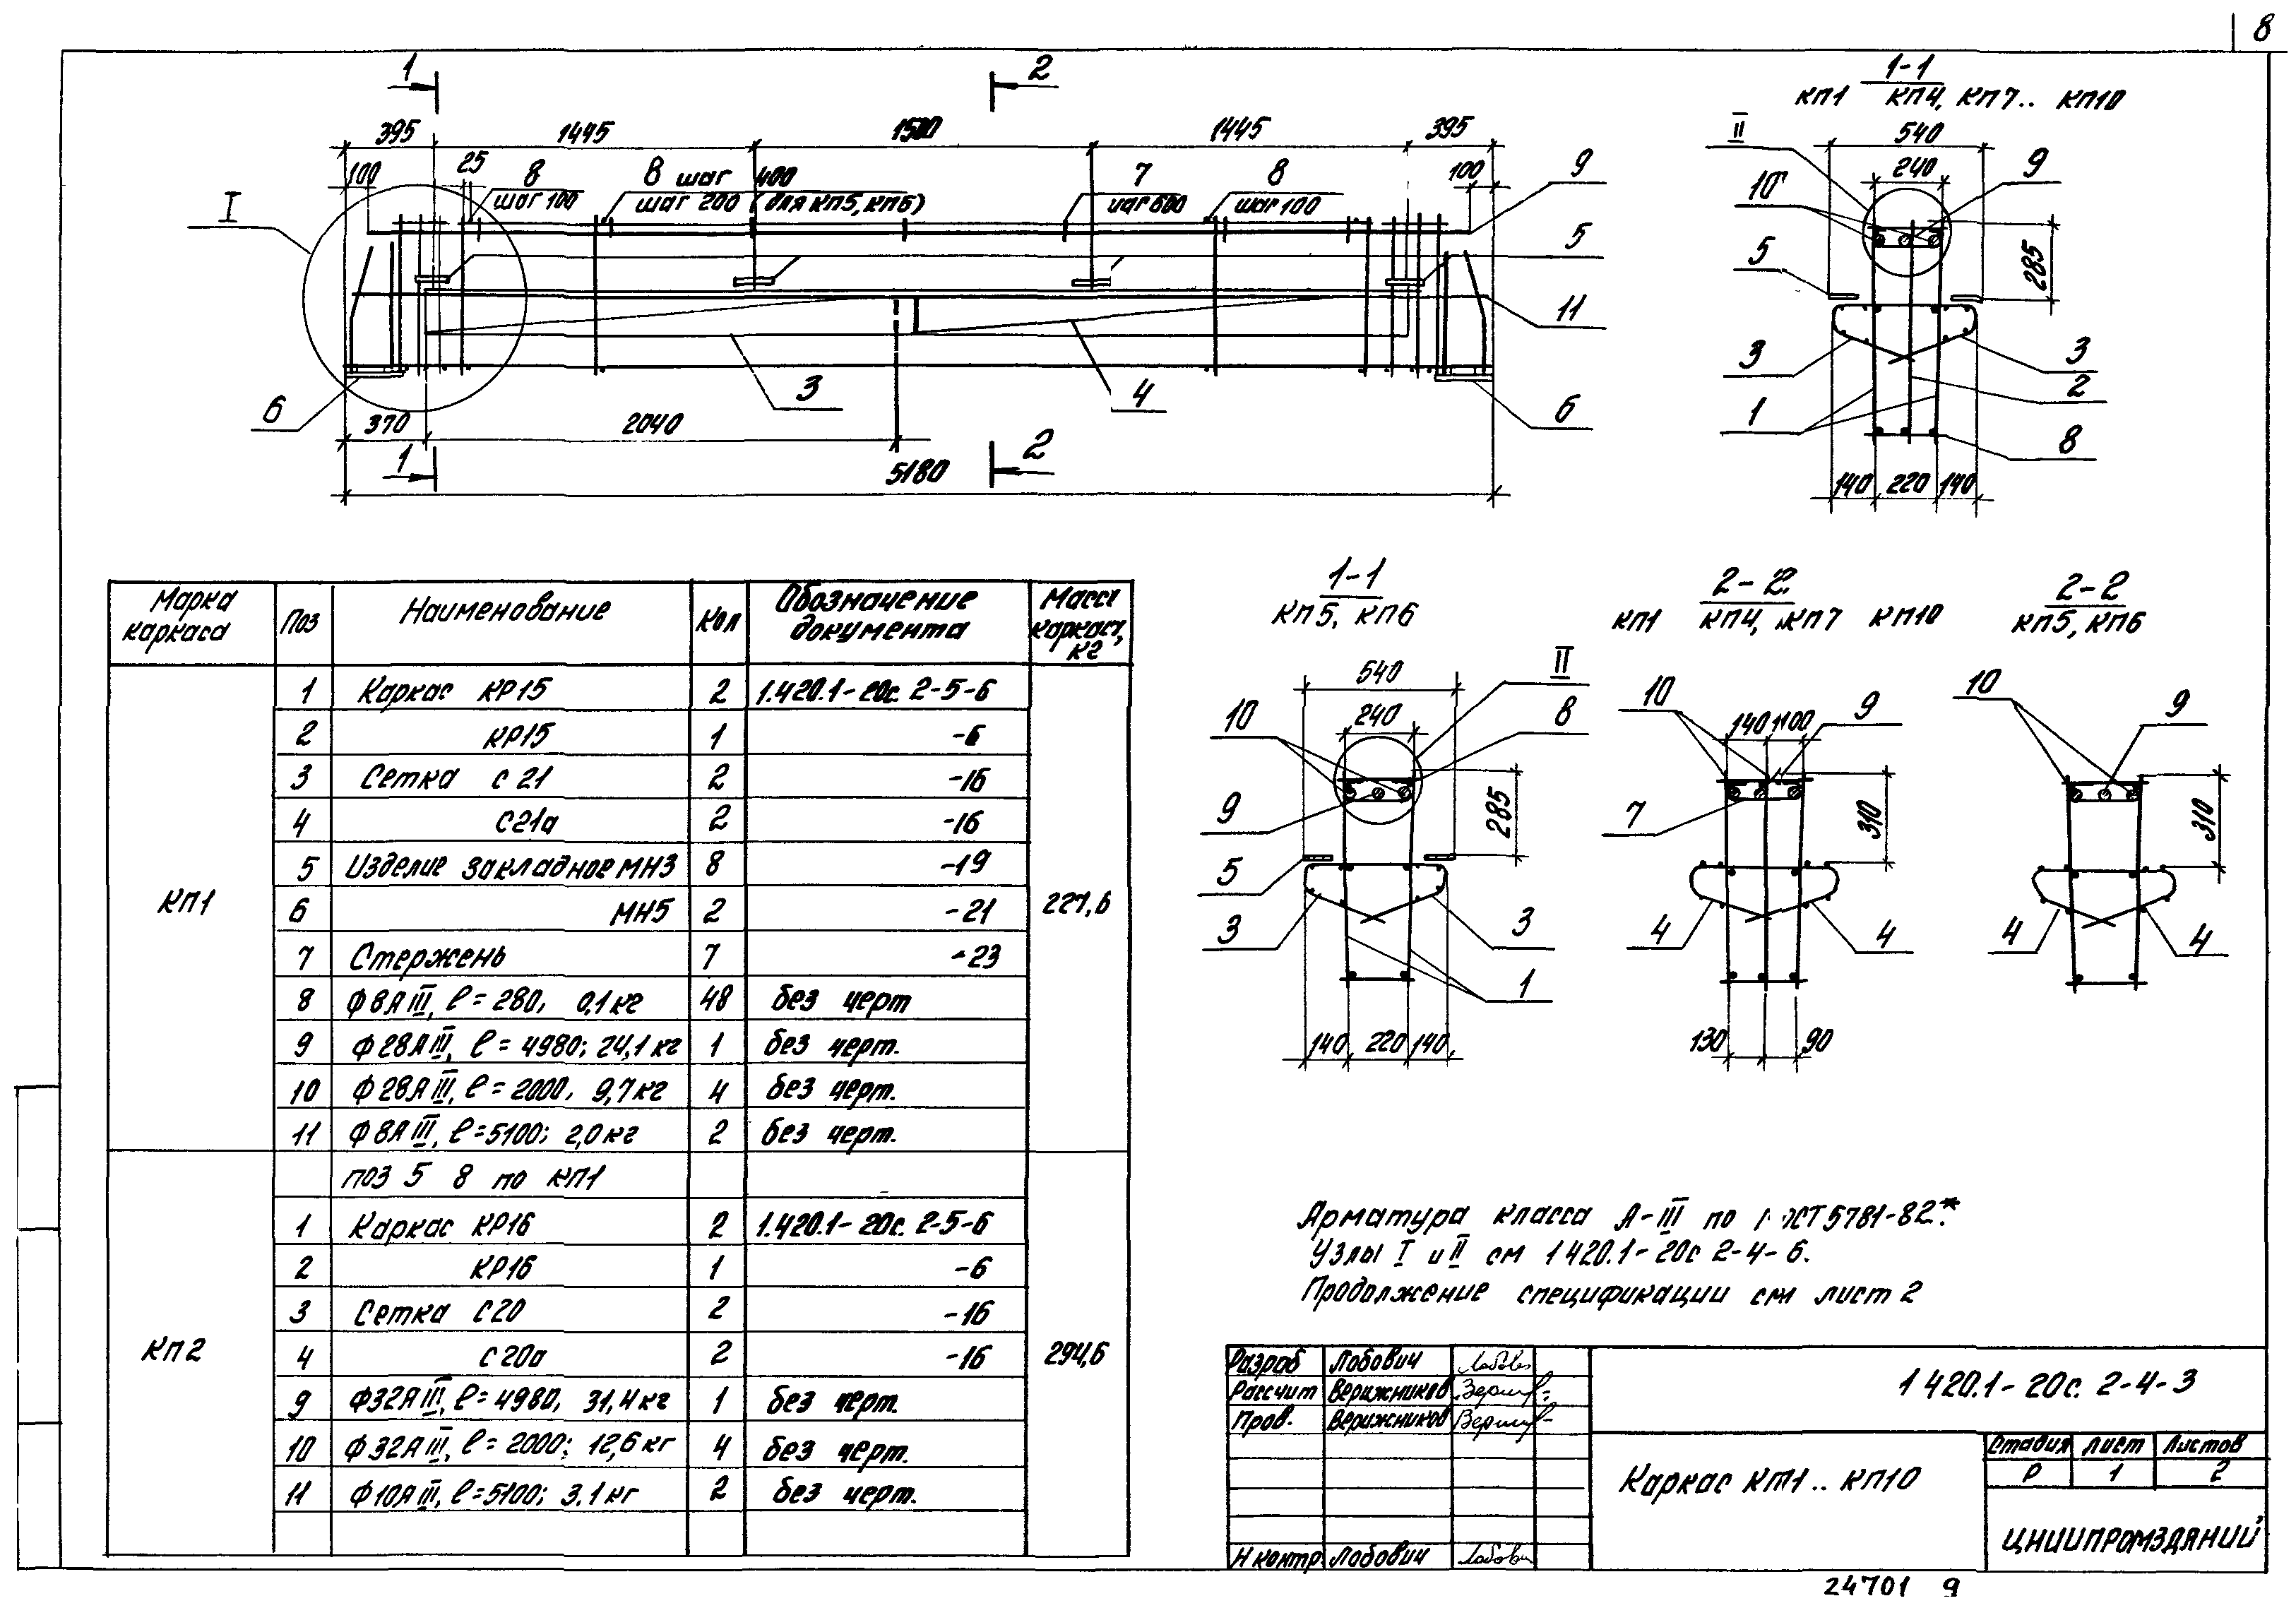 8
1
2
395 1445 1500 1445 395
100 25 8 шаг 100
8 шаг 400
шаг 200 (для КП5, КП6)
7 шаг 600
8 шаг 100
100
9
I
5
11
6
3
4
6
370 2040
5180
1
2
1-1
КП1 КП4, КП7.. КП10
II
540
240
10
9
5
285
3
3
2
1
8
140 220 140
1-1
КП5, КП6
540
II
240
10
8
9
285
5
3
3
1
140 220 140
2-2
КП1 КП4, КП7 КП10
10
140 100
9
7
310
4
4
130 90
2-2
КП5, КП6
10
9
310
4
4
Марка каркаса Поз Наименование Кол Обозначение документа Масса каркаса, кг
КП1
1 Каркас КР15 2 1.420.1-20с. 2-5-6
2 КР15 1 -6
3 Сетка С21 2 -16
4 С21а 2 -16
5 Изделие закладное МН3 8 -19
6 МН5 2 -21
227,6
7 Стержень 7 -23
8 Ф8АIII, ℓ=280, 0,1кг 48 без черт
9 Ф28АIII, ℓ=4980; 24,1кг 1 без черт.
10 Ф28АIII, ℓ=2000, 9,7кг 4 без черт.
11 Ф8АIII, ℓ=5100; 2,0кг 2 без черт.
КП2
поз 5 8 по КП1
1 Каркас КР16 2 1.420.1-20с. 2-5-6
2 КР16 1 -6
3 Сетка С20 2 -16
4 С20а 2 -16
294,6
9 Ф32АIII, ℓ=4980, 31,4кг 1 без черт.
10 Ф32АIII, ℓ=2000; 12,6кг 4 без черт.
11 Ф10АIII, ℓ=5100; 3,1кг 2 без черт.
Арматура класса А-III по ГОСТ 5781-82.*
Узлы I и II см 1 420.1-20с 2-4-6.
Продолжение спецификации см лист 2
Разраб Лобович
Рассчит Верижников
Пров. Верижников
Н контр Лобович
1 420.1-20с. 2-4-3
Каркас КП1.. КП10
Стадия Лист Листов
Р 1 2
ЦНИИПРОМЗДАНИЙ
24701 9